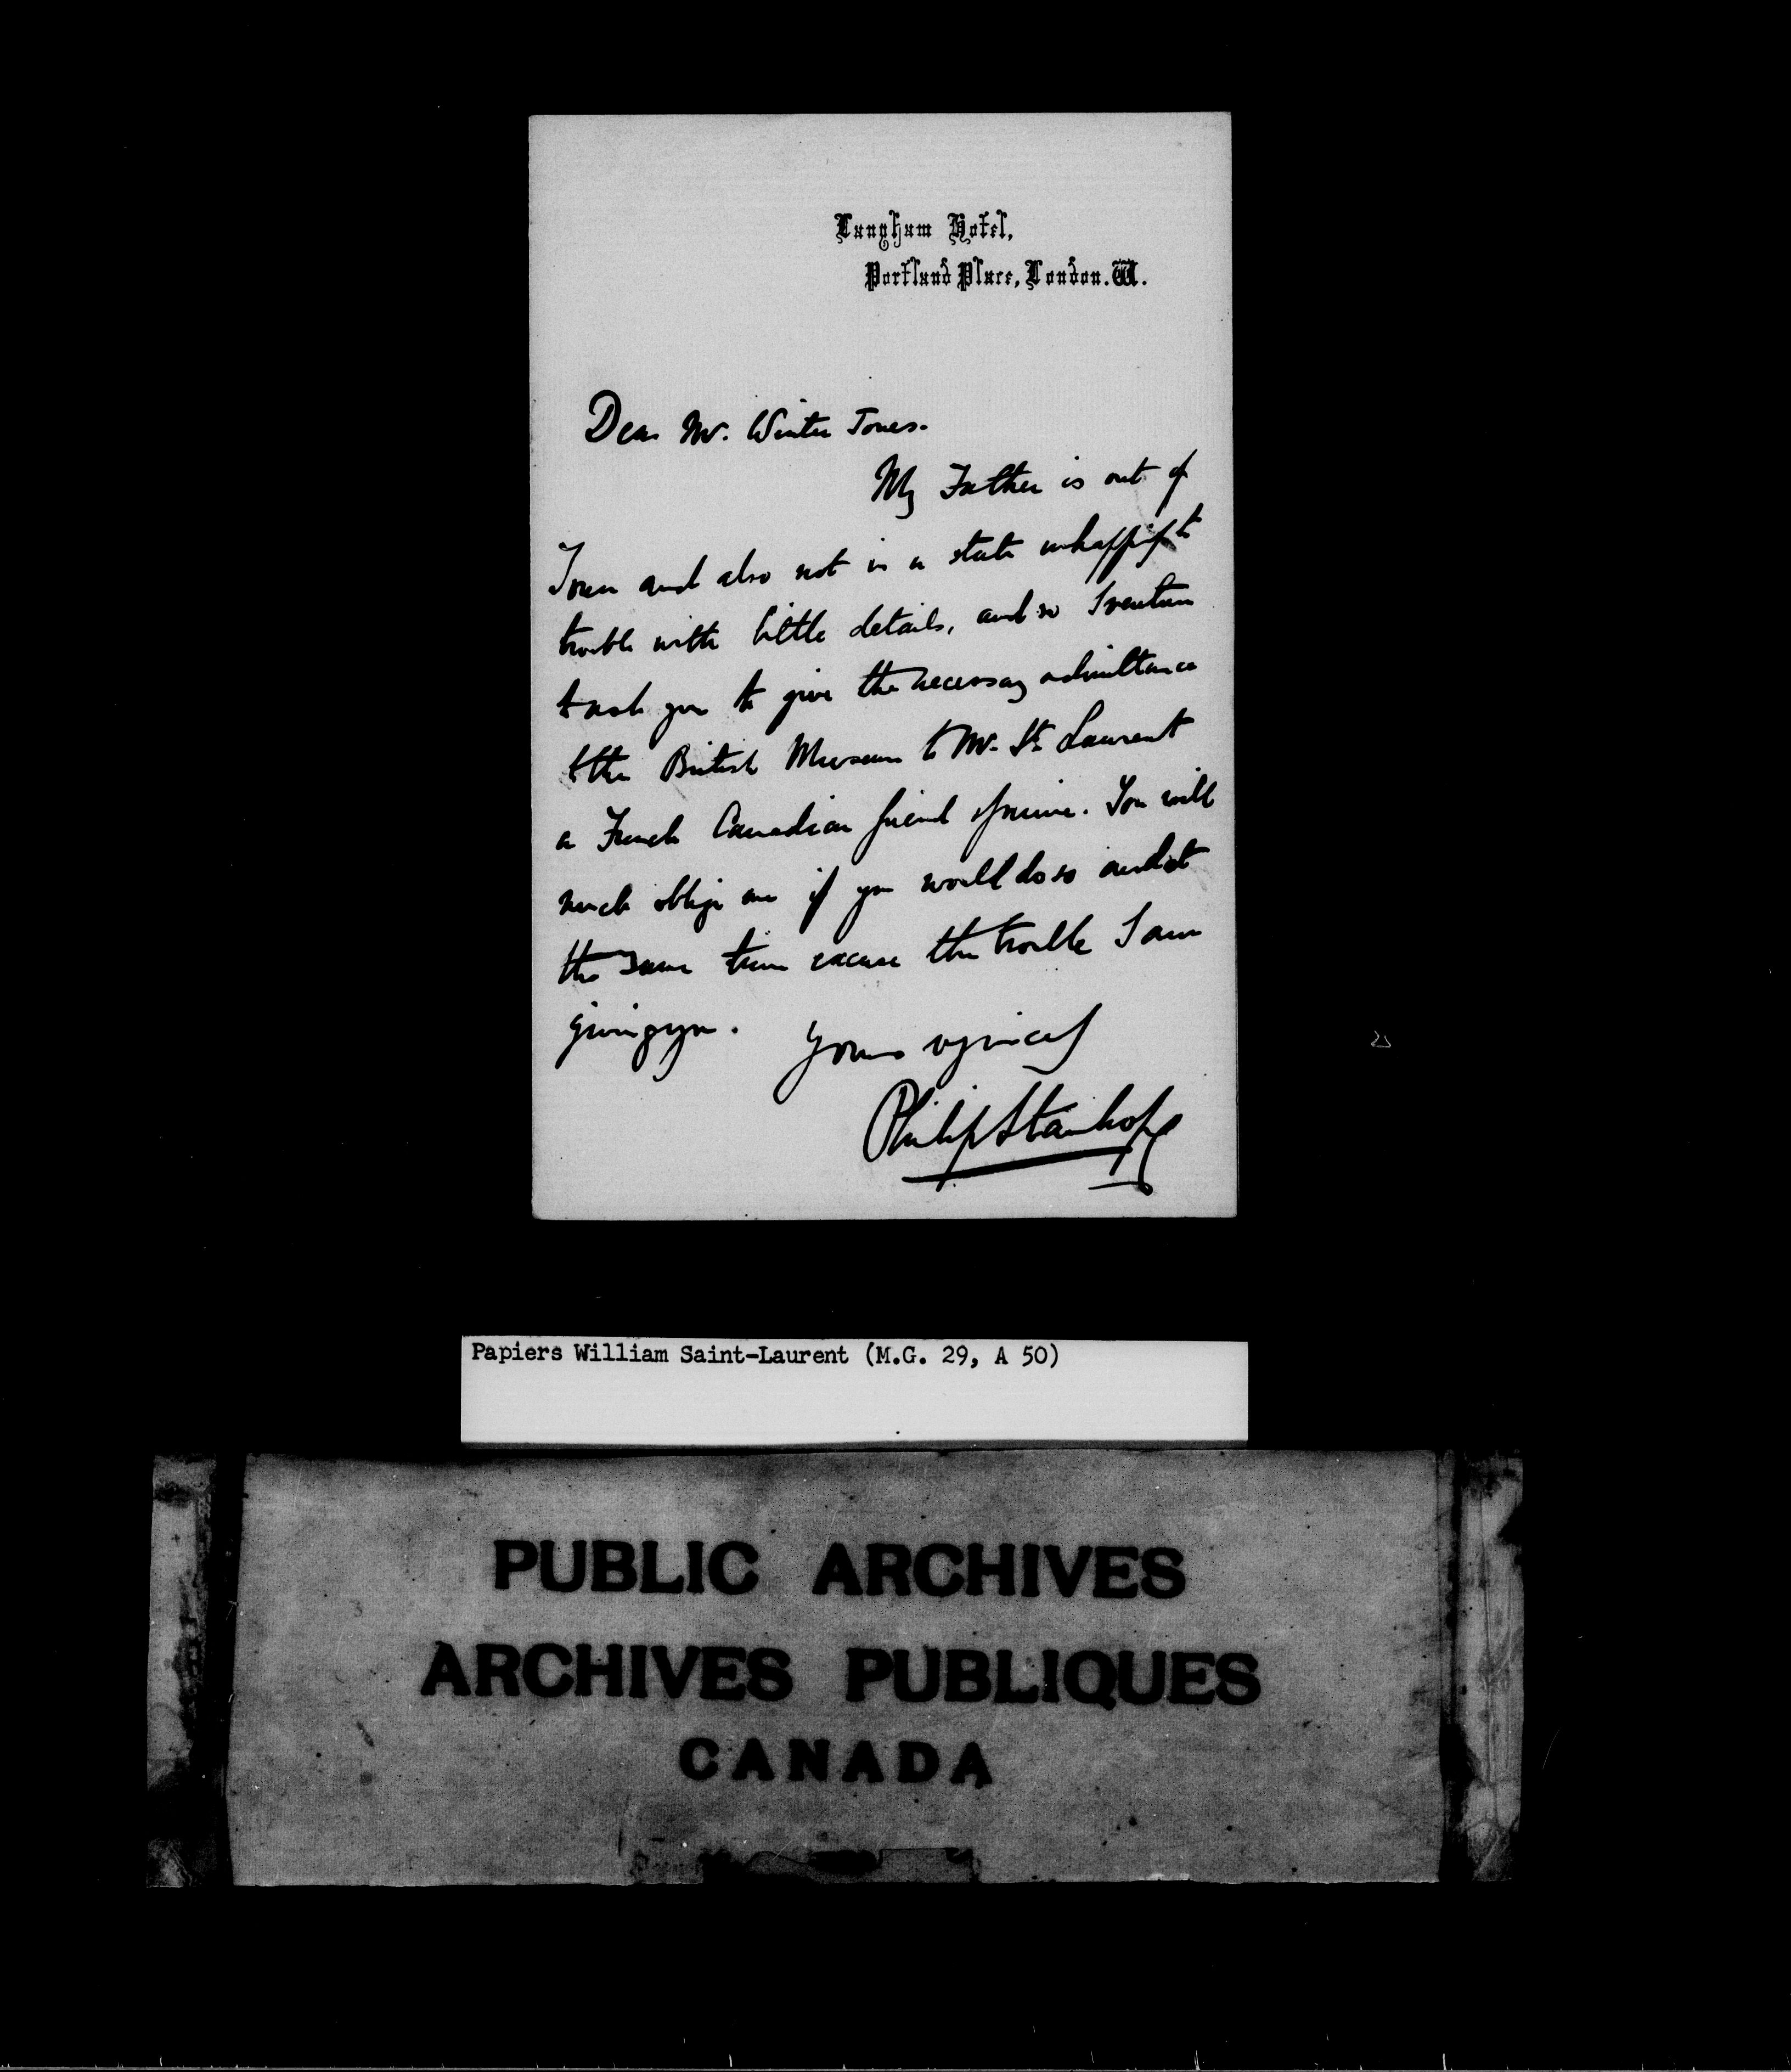 Langham Hotel,
Portland Place, London. W.
Dear Mr. Winter Jones.
My Father is out of
Town and also not in a state unhappily to
trouble with little details, and so I venture
to ask you to give the necessary admittance
to the British Museum to Mr. St. Laurent
a French Canadian friend of mine. You will
much oblige me if you would do so and at
the same time excuse the trouble I am
giving you.
Yours sincerely
Philip Stanhope
Papiers William Saint-Laurent (M.G. 29, A 50)
PUBLIC ARCHIVES
ARCHIVES PUBLIQUES
CANADA